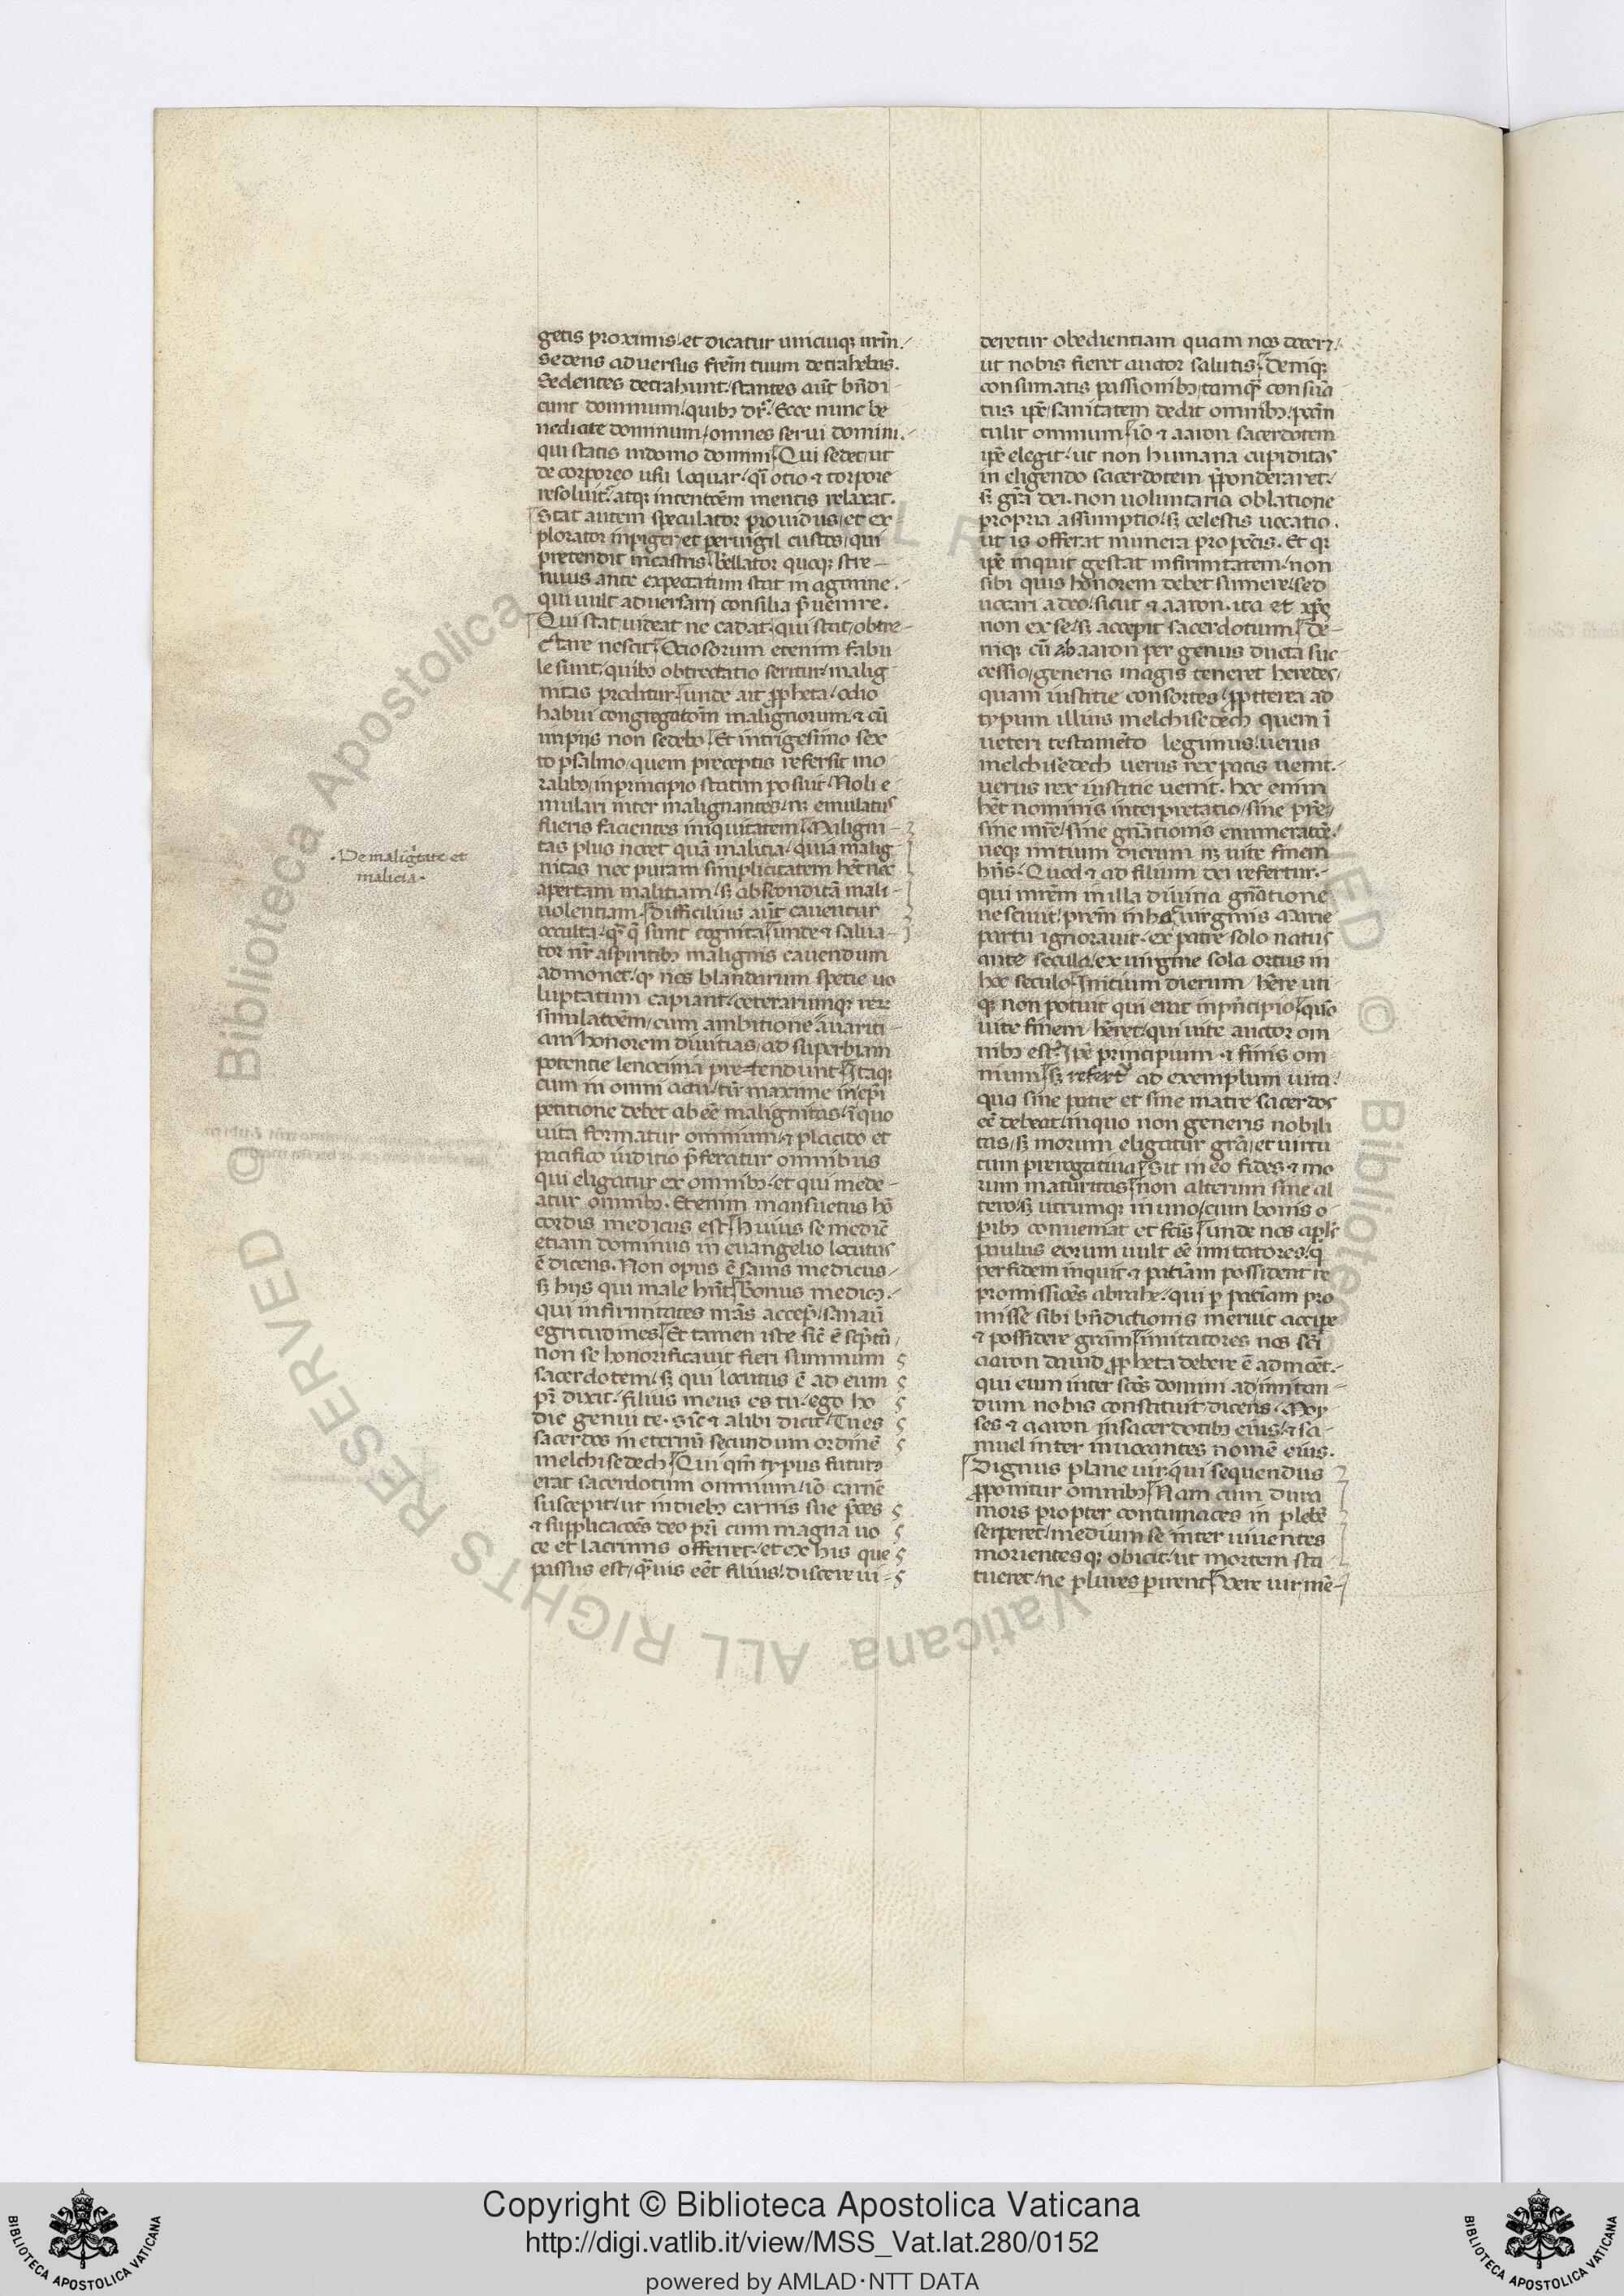 getis proximis/ et dicatur unicuiqꝫ ur̃m./
Sedens adversus fr̃em tuum detrahebas.
Sedentes detrahunt/ stantes aut̃ bn̄di-
cunt dominum/ quibꝫ dr̃. Ecce nunc be
nedicite dominum/ omnes servi domini./
qui statis in domo domini Qui sedet/ ut
de corporeo usu loquar/ qͥ ocio ⁊ torpore
resolvit͛ atqꝫ intentōem mentis relaxat.
Stat autem speculator providus/ et ex-
plorator inpiger/ et pervigil custos/ qui
pretendit in castris bellator quoqꝫ stre-
nuus ante expectatum stat in agmine.
qui vult adversarij consilia p̃venire.
Qui stat/ videat ne cadat/ qui stat/ obtre-
ctare nescit Ociosorum etenim fabu
le sunt/ quibꝫ obtrectatio seritur/ malig
nitas proditur/ unde ait ꝓpheta/ odio
habui congregatōm malignorum/ ⁊ cū
impijs non sedebo Et in trigesimo sex
to psalmo/ quem preceptis refersit mo
ralibꝫ/ in principio statim posuit/ Noli e
mulari inter malignantes/ nꝫ emulatus
fueris facientes iniquitatem Maligni-
tas plus nocet quā malicia/ quia malig
nitas nec puram simplicitatem hēt nec
apertam malitiam/ sꝫ absconditā mali-
volentiam. difficilius aut̃ caventur
occulta/ qͫ q̄ sunt cognita unde ⁊ salva-
tor nr̃ a spiritibꝫ malignis cavendum
admonet/ qꝫ nos blandarum specie vo
luptatum capiant/ ceterarumqꝫ reꝝ
simulatōem/ cum ambitione avariti-
am honorem divitias/ ad superbiam
potentie lenocinia pretendunt Itaqꝫ
cum in omni actu/ tū maxime in ep̄i
petitione debet abeē malignitas/ ī quo
vita formatur omnium/ ⁊ placido et
pacifico iuditio p̄feratur omnibus
qui eligatur ex omnibꝫ/ et qui mede-
atur omnibꝫ. Etenim mansuetus hō
cordis medicus est huius se medicē
etiam dominus in evangelio locutus
ē dicens. Non opus ē sanis medicus/
sꝫ hijs qui male hn̄t Bonus medicꝫ./
qui infirmitates nr̃as accep̄/ sanavī
egritudines Et tamen iste sic̄ ē scp̄tū/
non se honorificavit fieri summum
sacerdotem/ sꝫ qui locutus ē ad eum
pr̃ dixit/ filius meus es tu/ ego ho
die genui te. sic̄ ⁊ alibi dicit/ Tu es
sacerdos in eternū secundum ordinē
melchisedech Qui qm̄ typus futurꝫ
erat sacerdotum omnium/ iō carnē
suscepit/ ut in diebꝫ carnis sue p̄ces
⁊ supplicacōēs deo pr̃i cum magna vo
ce et lacrimis offerret./ et ex his que
passus est/ qͫvis eēt filius/ discere vi-
deretur obedientiam quam nos doceret./
ut nobis fieret auctor salutis Deniqꝫ
consumatis passionibꝫ/ tamqͫ consūa
tus ip̄e/ sanitatem dedit omnibꝫ/ pcc̄m
tulit omnium iō ⁊ aaron sacerdotem
ip̄e elegit/ ut non humana cupiditas
in eligendo sacerdotem p̄ponderaret/
sꝫ gr̄a dei. non voluntaria oblatione
propria assumptio/ sꝫ celestis vocatio.
ut is offerat munera pro pcc̄is. Et qꝛ
ip̄e inquit gestat infirmitatem/ non
sibi quis honorem debet sumere/ sed
vocari a deo/ sicut ⁊ aaron. ita et xp̄c
non ex se/ sꝫ accepit sacerdotium De-
niqꝫ cū ab aaron per genus ducta suc
cessio/ generis magis teneret heredes/
quam iustitie consortes/ ꝓpterea ad
typum illius melchisedech quem ī
veteri testamēto legimus/ verus
melchisedech verus rex pacis venit.
verus rex iustitie venit. hoc enim
hēt nominis interpretatio/ sine pr̃e/
sine mr̃e/ sine gn̄ationis enumeratōe./
neqꝫ initium dierum nꝫ vite finem
hn̄s. Quod ⁊ ad filium dei refertur.
qui mr̃em in illa divina gn̄atione
nescivit/ prēm in hac virginis Marie
partu ignoravit. ex patre solo natus
ante secula/ ex virgine sola ortus in
hoc seculo Initium dierum hēre uti
qꝫ non potuit qui erat in pn̄cipio quō
vite finem hēret/ qui vite auctor om
nibꝫ est. Ip̄e principium ⁊ finis om
nium sꝫ refert͛ ad exemplum vita./
qua sine patre et sine matre sacerdos
eē debeat/ in quo non generis nobili
tas/ sꝫ morum eligatur gr̄a/ et virtu
tum prerogativa Sit in eo fides ⁊ mo
rum maturitas non alterum sine al
tero/ sꝫ utrumqꝫ in uno/ cum bonis o-
pibꝫ conveniat et fcīs unde nos apl̄s
paulus eorum vult eē imitatores/ qͥ
per fidem inquit ⁊ patiām possident re
promissiōes abrahe/ qui ꝑ patiām pro
misse sibi bn̄dictionis meruit accipe
⁊ possidere grām imitatores nos scī
aaron david ꝓpheta debere ē admōēt.
qui eum inter scōs domini ad imitan-
dum nobis constituit/ dicens. Moy
ses ⁊ aaron in sacerdotibꝫ eius/ ⁊ sa
muel inter invocantes nomē eius.
Dignus plane vir/ qui sequendus
ꝓponitur omnibꝫ Nam cum dura
mors propter contumaces in plebē
serperet/ medium se inter viventes
morientesqꝫ obicit/ ut mortem sta
tueret/ ne plures perirent Vere vir mē-
.De malig̃tate et
malicia.
Copyright © Biblioteca Apostolica Vaticana
http://digi.vatlib.it/view/MSS_Vat.lat.280/0152
powered by AMLAD·NTT DATA
BIBLIOTECA APOSTOLICA VATICANA
BIBLIOTECA APOSTOLICA VATICANA
© Biblioteca Apostolica Vaticana ALL RIGHTS RESERVED